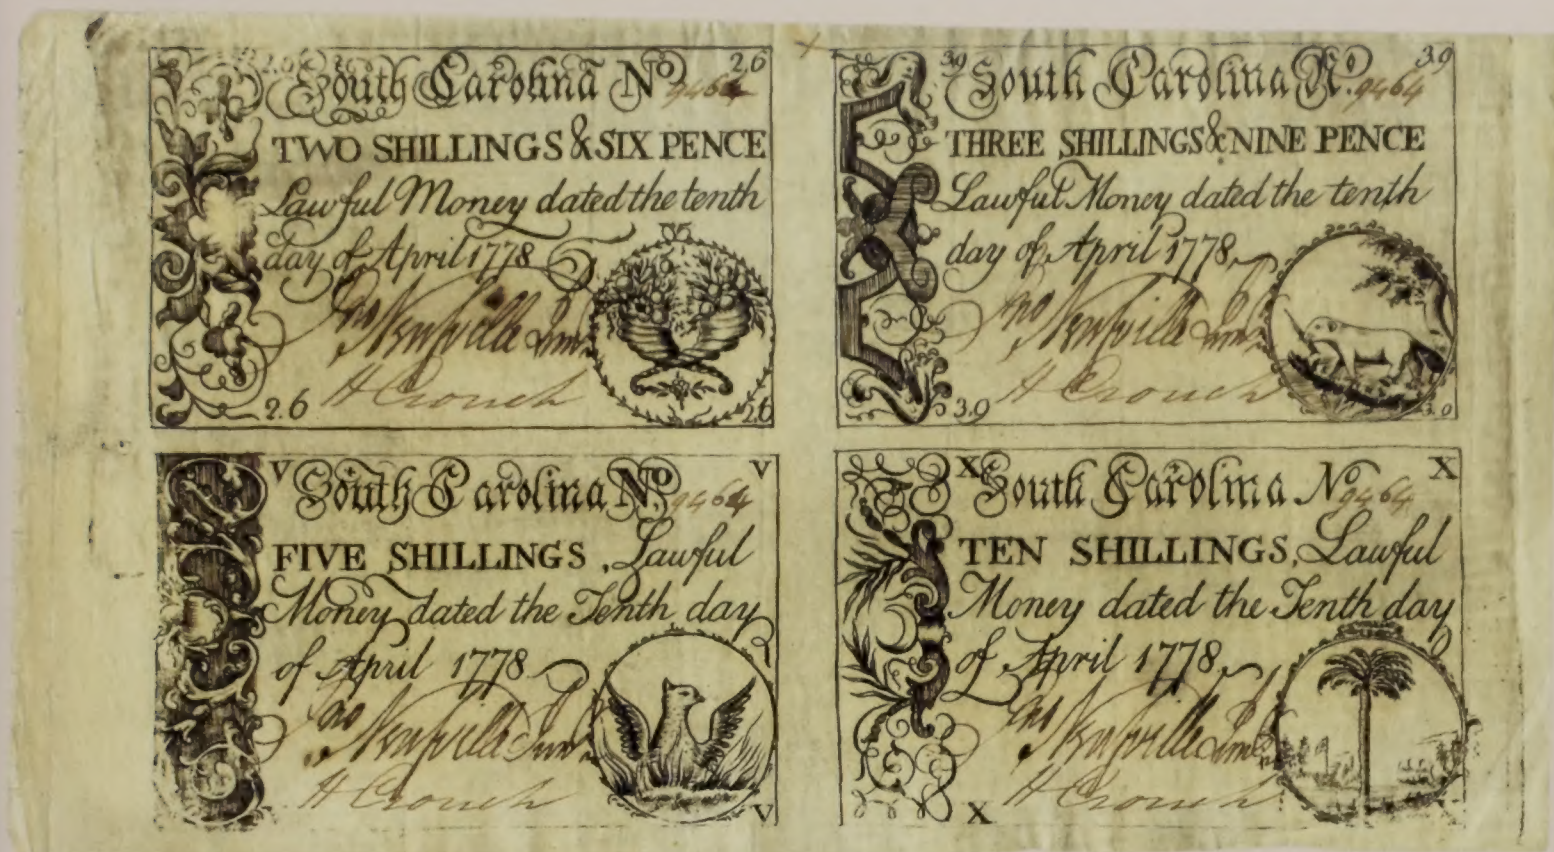 2.6
South Carolina No 9464
TWO SHILLINGS & SIX PENCE
Lawful Money dated the tenth
day of April 1778
Jno Neufville Junr
H Crouch
2.6
2.6
3.9 3.9
South Carolina No. 9464
THREE SHILLINGS & NINE PENCE
Lawful Money dated the tenth
day of April 1778
Jno Neufville Junr
H Crouch
3.9
3.9
V V
South Carolina No. 9464
FIVE SHILLINGS, Lawful
Money dated the Tenth day
of April 1778
Jno Neufville Junr
H Crouch
V
X X
South Carolina No. 9464
TEN SHILLINGS, Lawful
Money dated the Tenth day
of April 1778
Jno Neufville Junr
H Crouch
X